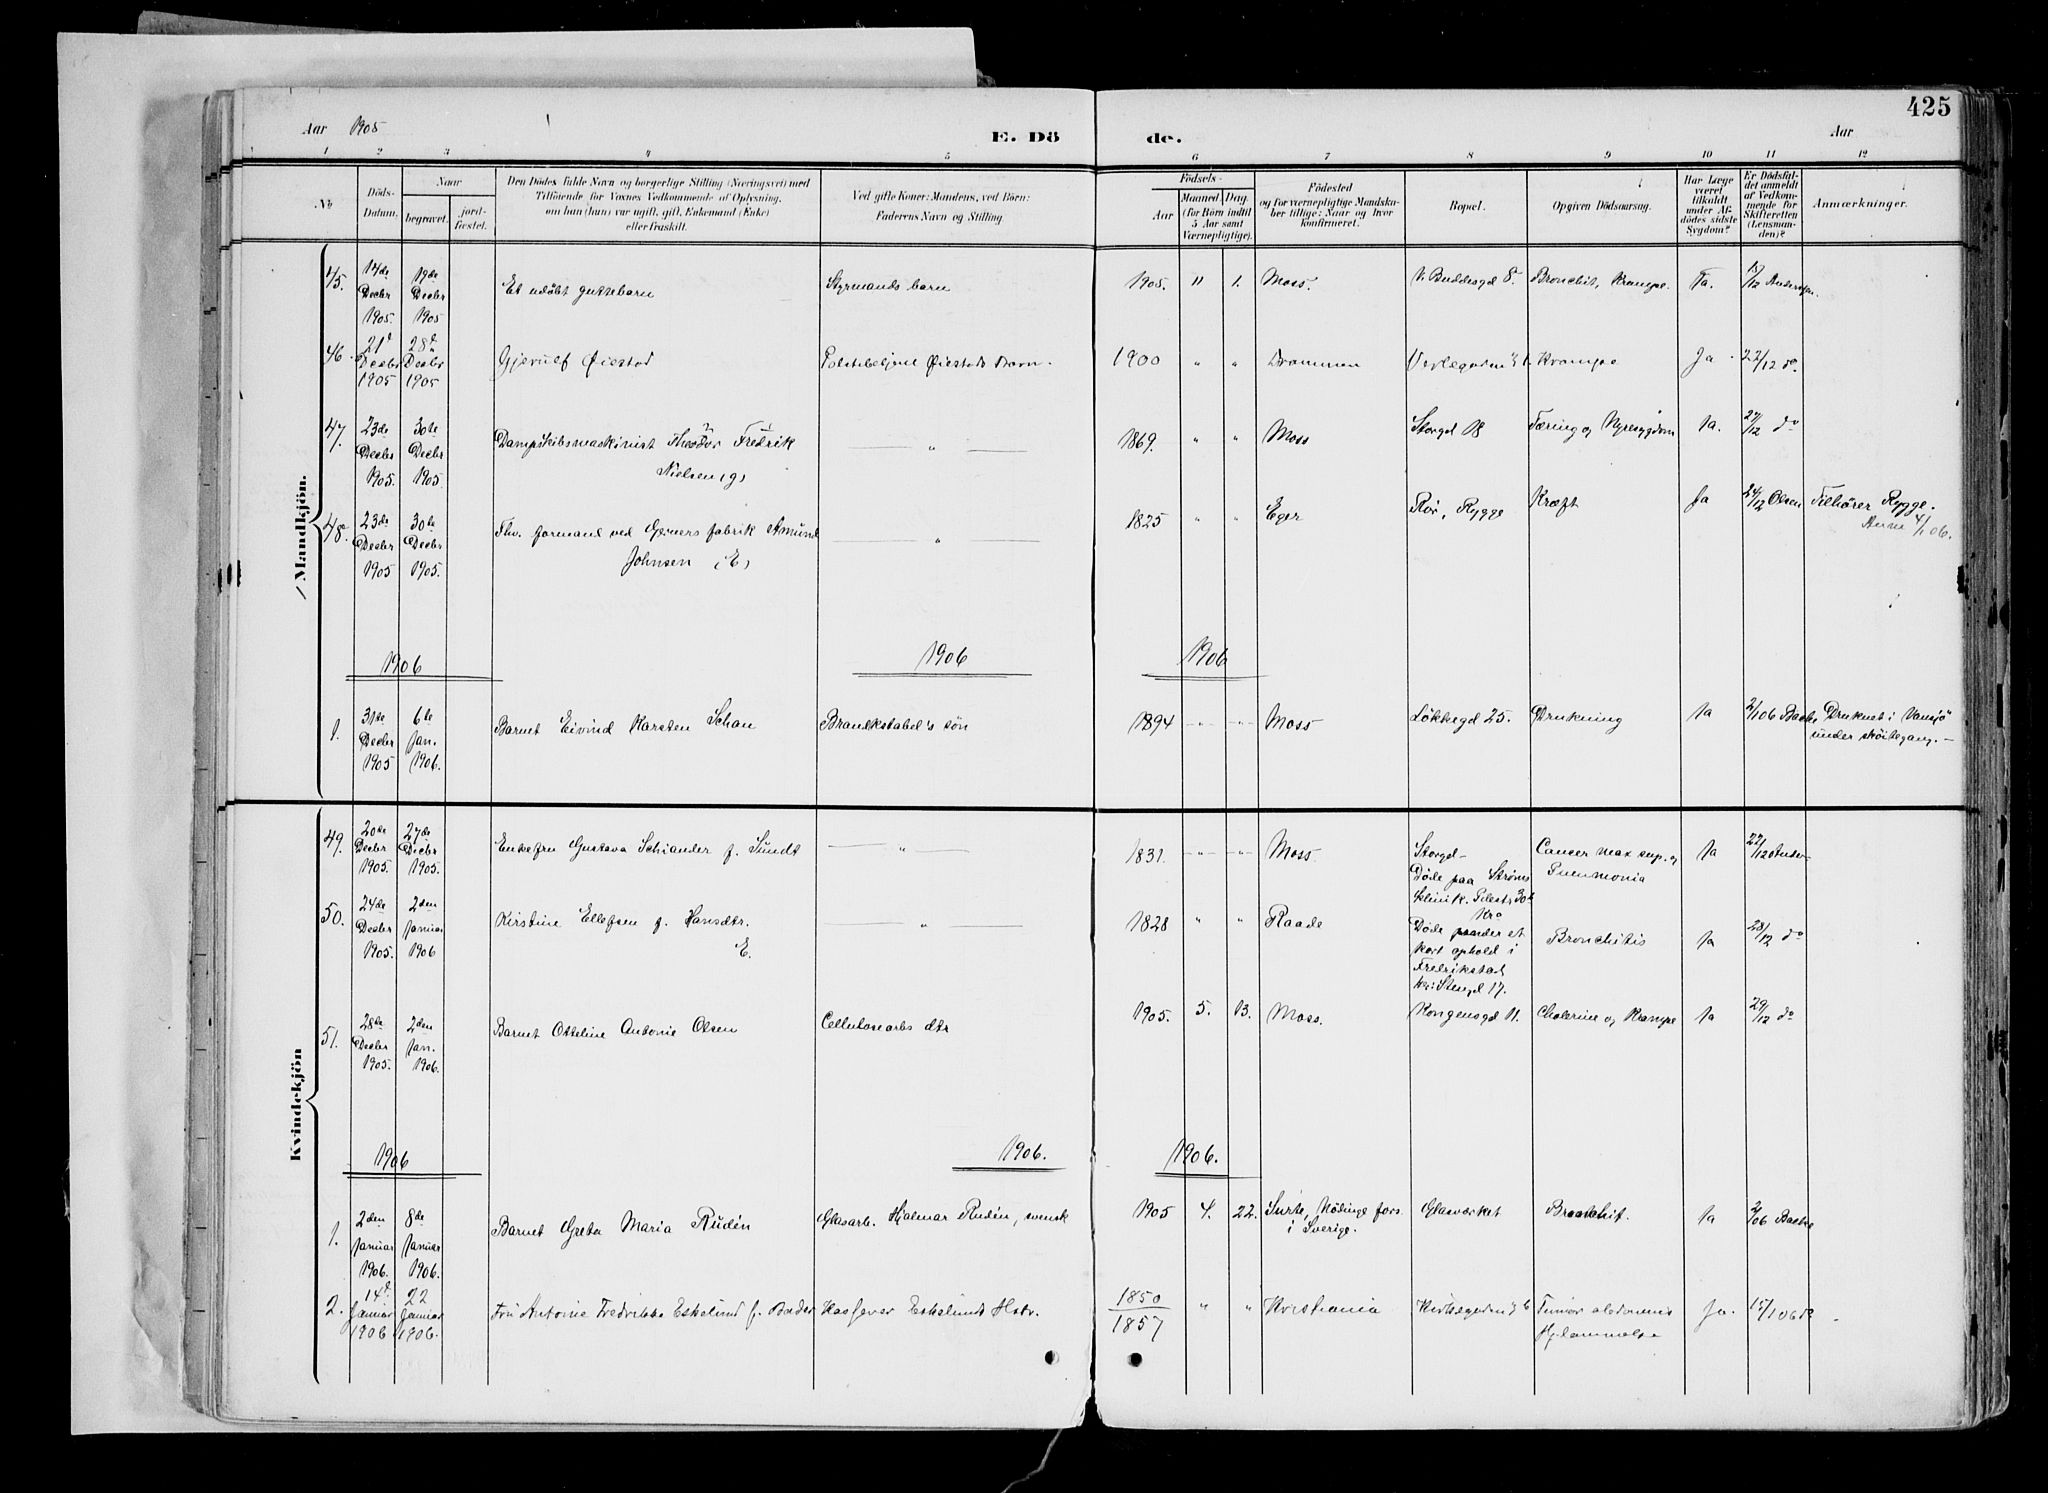 425
Aar 1905
E. Dö
de.
Aar
1 2 3 4 5 6 7 8 9 10 11 12
No
Döds-
Datum.
Naar
begravet.
jord-
fæstet.
Den Dödes fulde Navn og borgerlige Stilling (Næringsvei) med
Tilföiende for Voxnes Vedkommende af Oplysning,
om han (hun) var ugift, gift, Enkemand (Enke)
eller fraskilt.
Ved gifte Koner: Mandens, ved Börn:
Faderens Navn og Stilling.
Födsels-
Aar
Maaned
Dag.
(for Börn indtil
5 Aar samt
Værnepligtige).
Födested
og for værnepligtige Mandska-
ber tillige: Naar og hvor
konfirmeret.
Bopæl.
Opgiven Dödsaarsag.
Har Læge
været
tilkaldt
under Af-
dödes sidste
Sygdom?
Er Dödsfal-
det anmeldt
af Vedkom-
mende for
Skifteretten
(Lensman-
den)?
Anmærkninger.
Mandkjön.
45. 14de Decbr 1905. 19de Decbr 1905 Et udøbt guttebarn Styrmands barn 1905. 11 1. Moss. V. Buddesgd 8. Bronchit, Krampe. Ja. 15/12
46. 21d Decbr 1905 28d Decbr 1905 Gjerulf Øiestad Øiestads Barn. 1900 " " Drammen Krampe Ja. 22/12 do.
47. 23de Decbr 1905. 30te Decbr 1905. Dampskibsmaskinist Theodor Fredrik
Nielsen (g) " 1869. " " Moss Storgd 18 Tæring og Nyresygdom Ja. 27/12 do
48. 23de Decbr 1905 30te Decbr 1905. Fhv. formand ved Gerners fabrik Amund
Johnsen (E) " 1825 " " Eger Rør, Rygge Kræft Ja 24/12 Olsen Tilhører Rygge.
4/1 06.
1906 1906 1906
1. 31te Decbr 1905 6te Jan. 1906. Barnet Eivind Karsten Schau Brandkstabel's søn 1894 " " Moss Løkkegd 25. Drukning Ja 2/1 06 Druknet i Vansjö
under sköitegang.
Kvindekjön
49. 20de Decbr 1905. 27de Decbr 1905. Enkefru Gustava Schiander f. Sundt " 1831. " " Moss. Storgd-
Døde paa Strøms
klinik. Pilestr. 30b
Kra Cancer max sup. og
Pneumonia Ja 22/12
50. 24de Decbr 1905. 2den Januar 1906 Kirstine Ellefsen f. Hansdtr.
E. " 1828 " " Raade Døde under et
kort ophold i
Fredrikstad
Stengd 17. Bronchitis Ja 28/12 do
51. 28de Decbr 1905. 2den Jan. 1906. Barnet Otteline Antonie Olsen Cellulosearbs dtr 1905. 5. 13. Moss. Kongensgd 11. Cholerine og Krampe Ja 29/12 do
1906 1906. 1906.
1. 2den Januar 1906. 8de Januar 1906. Barnet Greta Maria Rudén Glasarb. Hjalmar Rudén, svensk 1905 4. 22. Surte, Nödinge fors.
i Sverige. Glasværket Bronchit. Ja
2. 14d Januar 1906 22 Januar 1906. Fru Antonie Fredrikke Eskelund f. Bøder Eskelunds Hstr. 1850
1857 " " Kristiania Tumor abdominis Ja.